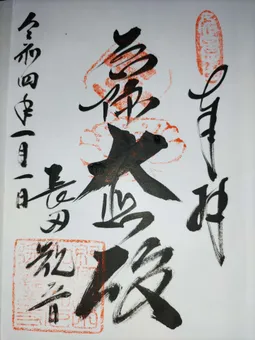 奉拝
厄除大悲殿
長田観音
令和四年一月一日